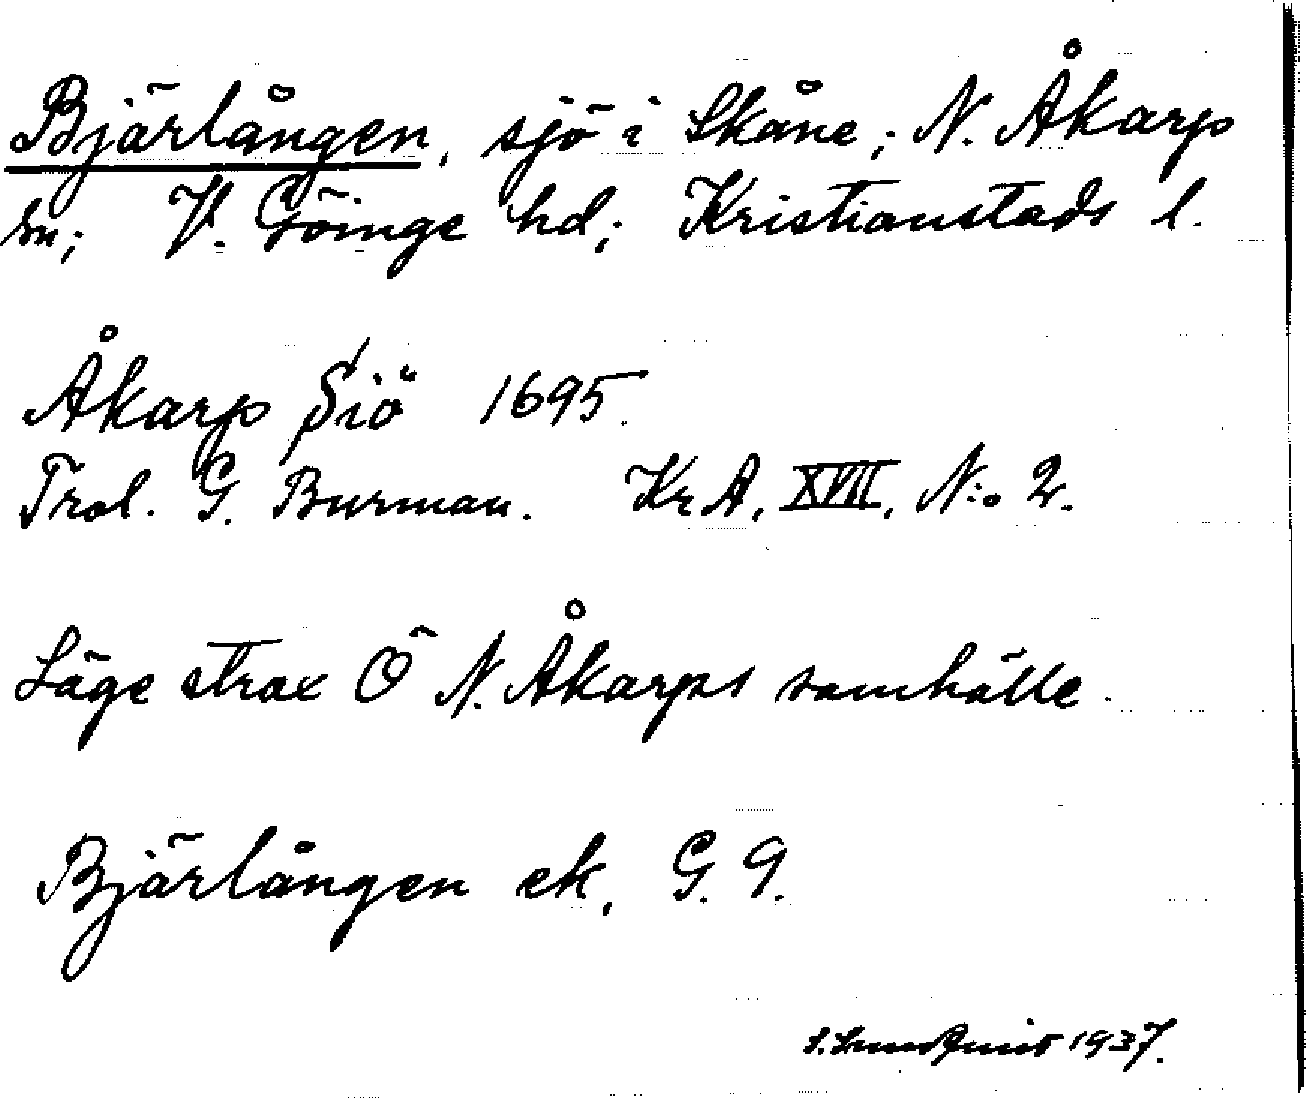 Bjärlången, sjö i Skåne; N. Åkarp
sn; V. Göinge hd; Kristianstads l.
Åkarp Siö 1695.
Trol. G. Burman. Kr A, XVII, N:o 2.
Läge strax Ö N. Åkarps samhälle.
Bjärlången ek, G. 9.
S. Lundquist 1937.